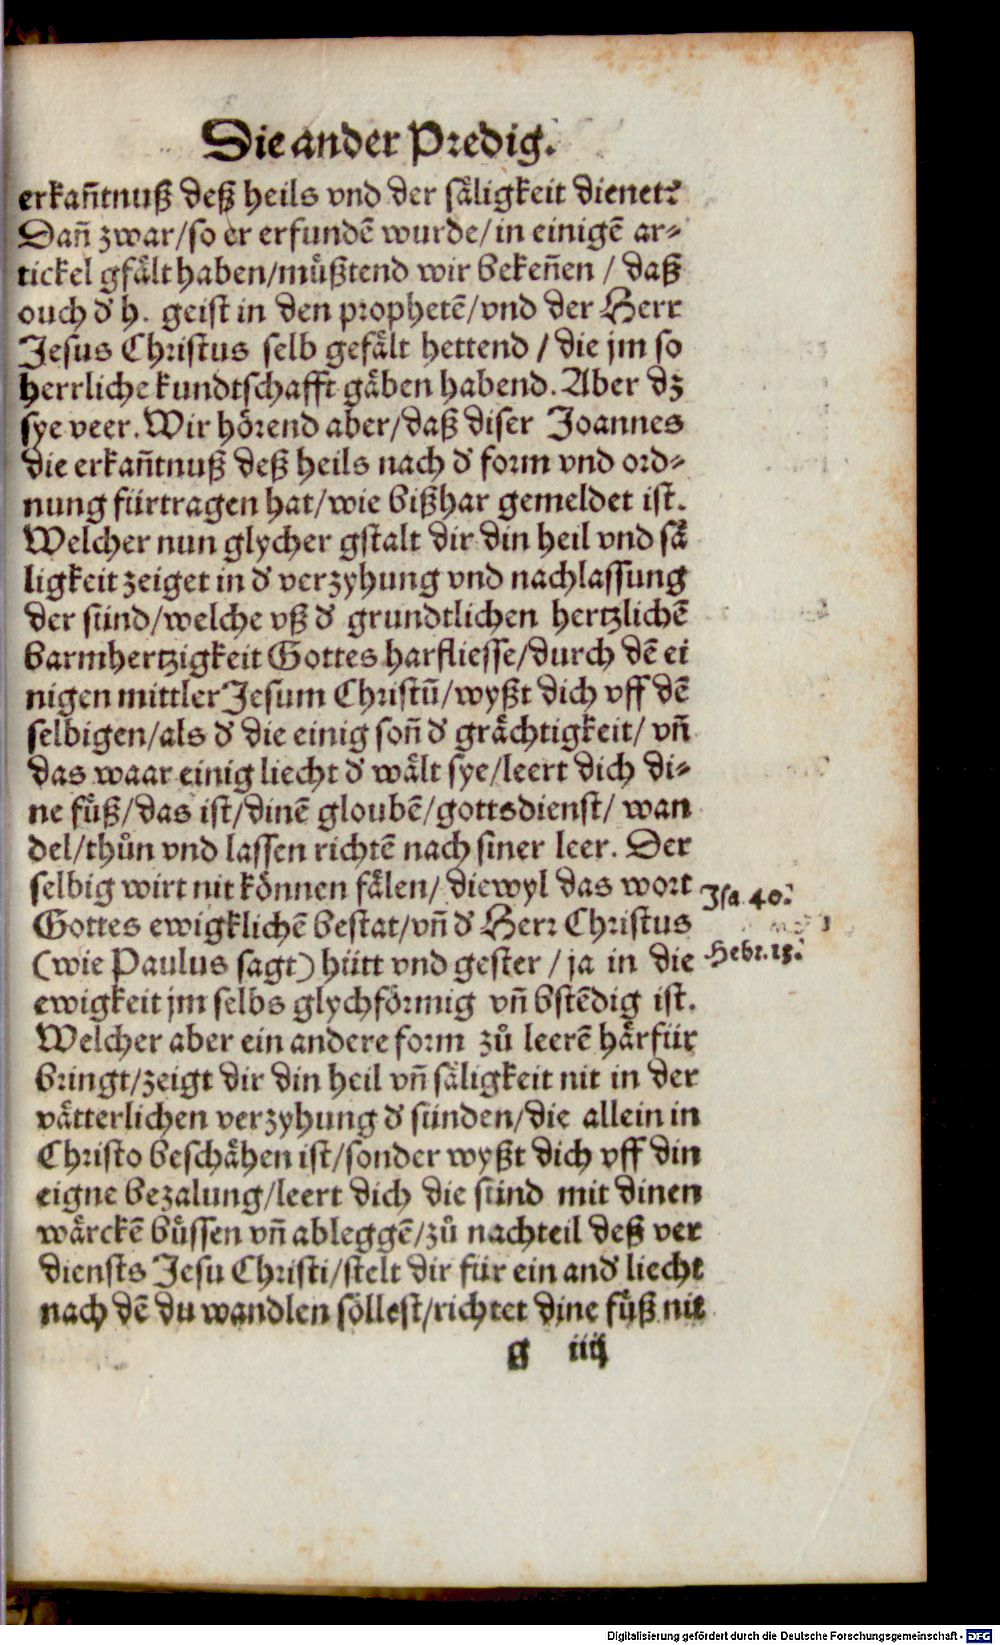 Die ander Predig.
erkañtnuß deß heils vnd der säligkeit dienet?
Dañ zwar/so er erfundē wurde/in einigē ar⸗
tickel gfält haben/müßtend wir bekeñen / daß
ouch d' h. geist in den prophetē/vnd der Herr
Jesus Christus selb gefält hettend / die jm so
herrliche kundtschafft gäben habend. Aber dz
sye veer. Wir hörend aber/daß diser Joannes
die erkañtnuß deß heils nach d' form vnd ord⸗
nung fürtragen hat/wie bißhar gemeldet ist.
Welcher nun glycher gstalt dir din heil vnd sä
ligkeit zeiget in d' verzyhung vnd nachlassung
der sünd/welche vß d' grundtlichen hertzlichē
barmhertzigkeit Gottes harfliesse/durch dē ei
nigen mittler Jesum Christū/wyßt dich vff dē
selbigen/als d' die einig soñ d' grächtigkeit/ vñ
das waar einig liecht d' wält sye/leert dich di⸗
ne fůß/das ist/dinē gloubē/gottsdienst/ wan
del/thůn vnd lassen richtē nach siner leer. Der
selbig wirt nit können fälen/ diewyl das wort
Isa. 40.
Gottes ewigklichē bestat/vñ d' Herr Christus
(wie Paulus sagt) hütt vnd gester / ja in die
Hebr. 13.
ewigkeit jm selbs glychförmig vñ bstēdig ist.
Welcher aber ein andere form zů leerē härfür
bringt/zeigt dir din heil vñ säligkeit nit in der
vätterlichen verzyhung d' sünden/die allein in
Christo beschähen ist/sonder wyßt dich vff din
eigne bezalung/leert dich die sünd mit dinen
wärckē büssen vñ ableggē/zů nachteil deß ver
diensts Jesu Christi/stelt dir für ein and' liecht
nach dē du wandlen söllest/richtet dine fůß nit
g iiij
Digitalisierung gefördert durch die Deutsche Forschungsgemeinschaft - DFG